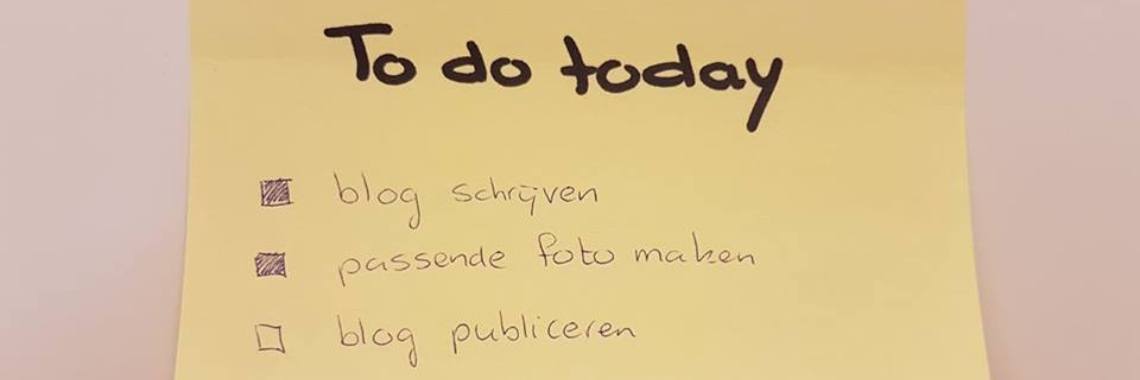 To do today
blog schrijven
passende foto maken
blog publiceren